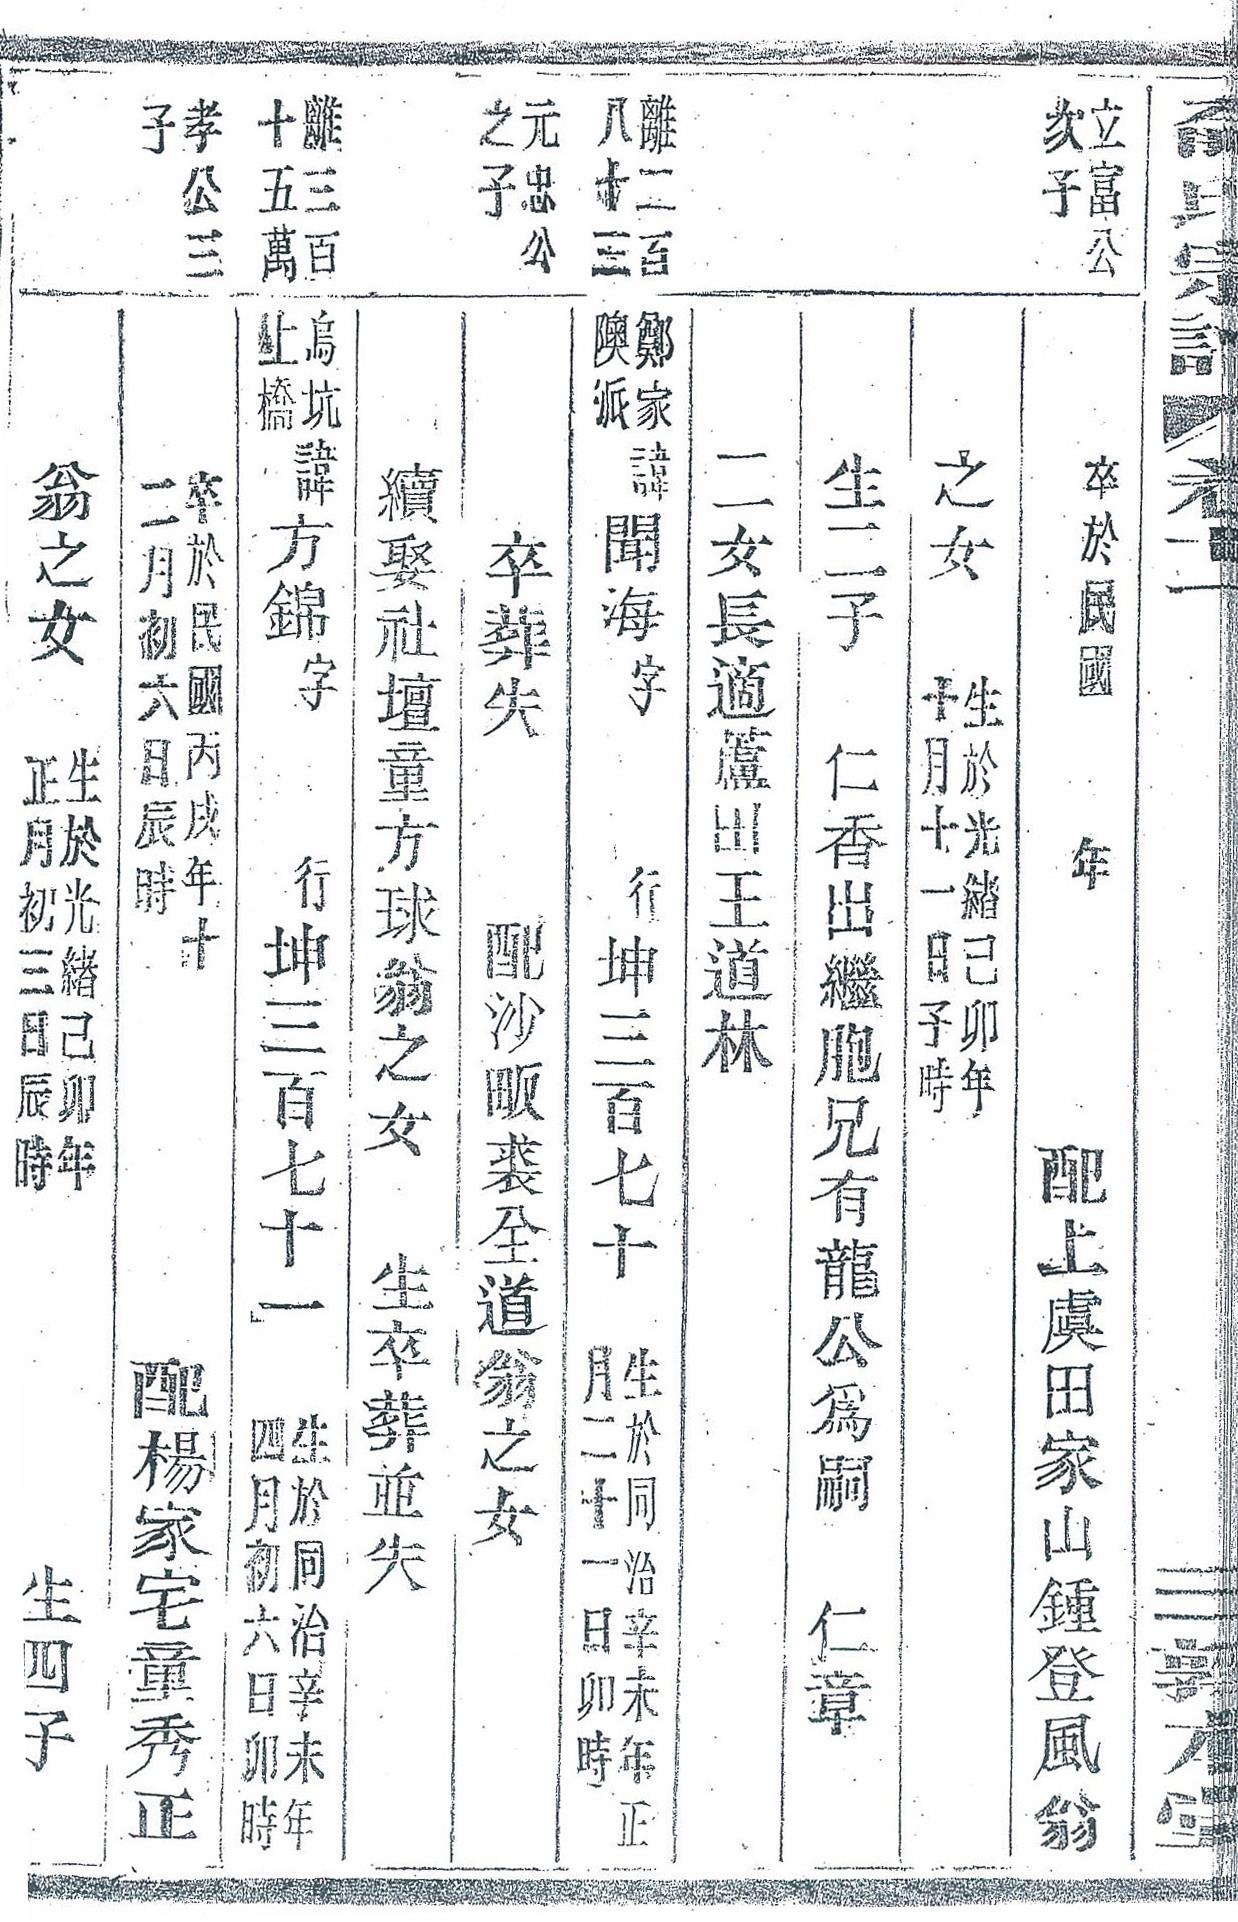 氏宗譜 卷二
立富公
次子
卒於民國 年 配上虞田家山鍾登風翁
之女 生於光緒己卯年
十月十一日子時
生二子 仁香出繼胞兄有龍公爲嗣 仁章
二女長適蘆田王道林
離二百
八十三
鄭家
隩派
諱聞海字 行坤三百七十 生於同治辛未年正
月二十一日卯時
元忠公
之子
卒葬失 配沙畈裘全道翁之女
續娶社壇童方球翁之女 生卒葬並失
離三百
十五萬
烏坑
上橋
諱方錦字 行坤三百七十一 生於同治辛未年
四月初六日卯時
孝公三
子
卒於民國丙戌年十
二月初六日辰時 配楊家宅童秀正
翁之女 生於光緒己卯年
正月初三日辰時
生四子